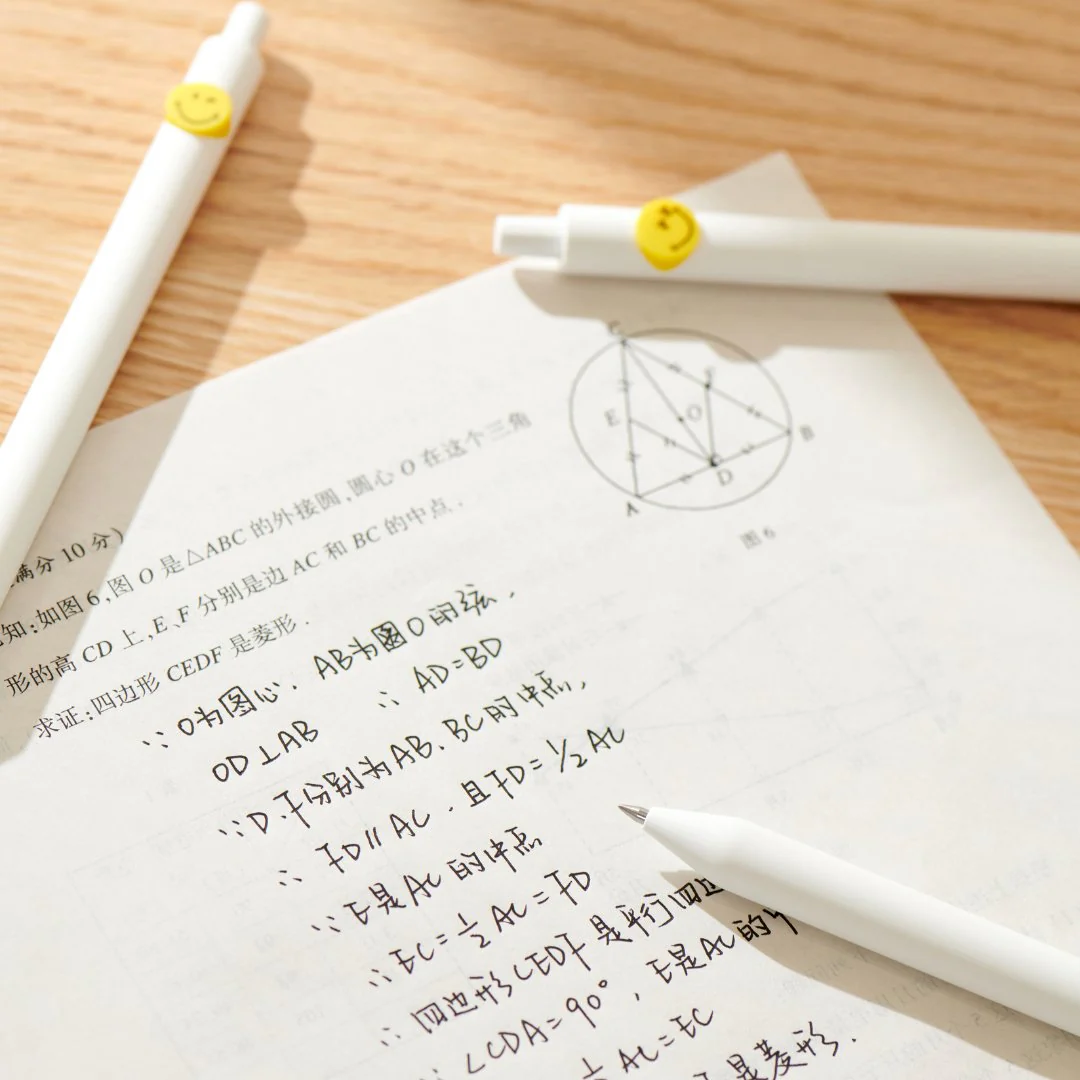 C
F
E
O
B
D
A
图6
满分 10 分)
知:如图 6,图 O 是△ABC 的外接圆,圆心 O 在这个三角
形的高 CD 上,E、F 分别是边 AC 和 BC 的中点.
求证:四边形 CEDF 是菱形.
∵ O为圆心. AB为圆O的弦.
OD⊥AB ∴ AD=BD
∵ D.F分别为AB.BC的中点,
∴ FD∥AC . 且FD=1/2 AC
∵ E是AC的中点
∴ EC=1/2 AC=FD
∴ 四边形CEDF是平行四边
∠CDA=90°, E是AC的
AC=EC
是菱形.